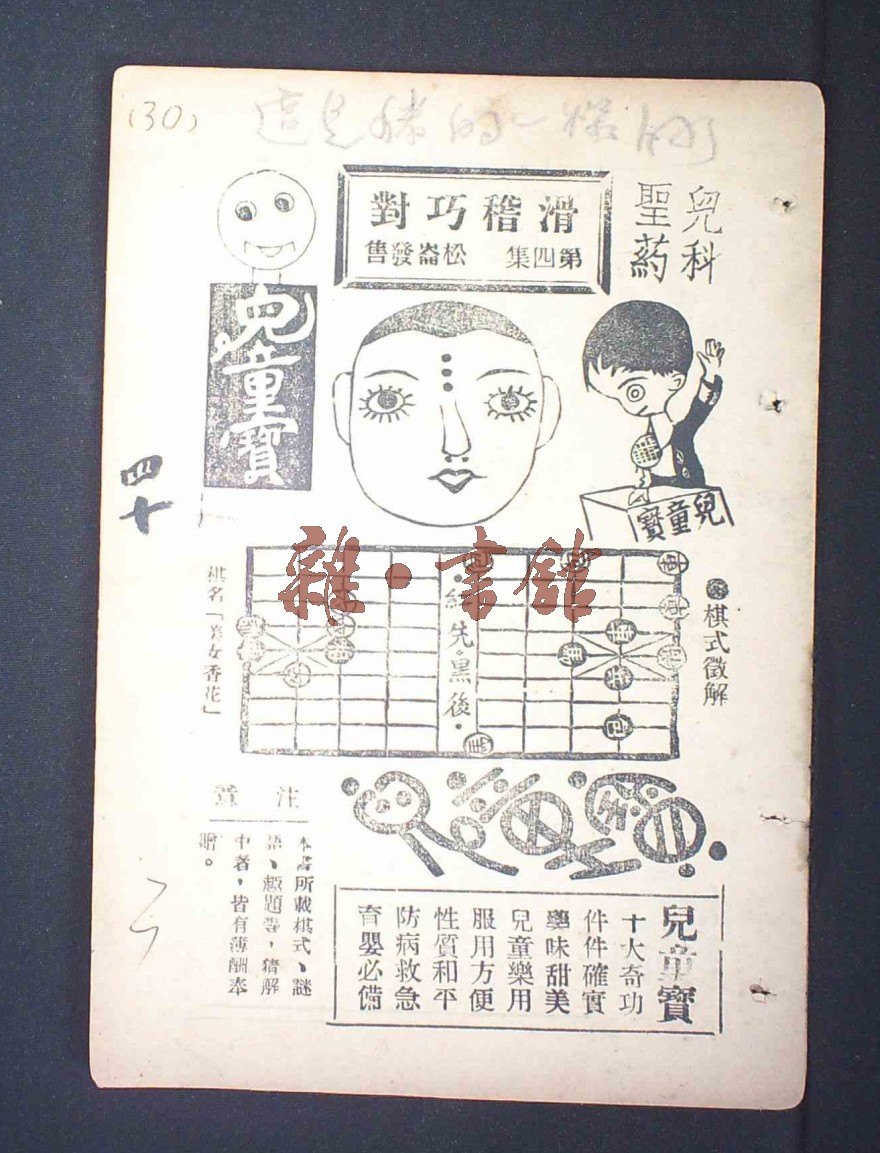 (30)
滑稽巧對
第四集 松崙發售
兒科
聖葯
兒童寶
兒童寶
四十
雜·書館
棋式徵解
紅先。黑後。
棋名「美女香花」
兒童寶
注意
本書所載棋式、謎
語、趣題等，猜解
中者，皆有薄酬奉
贈。
兒童寶
十大奇功
件件確實
藥味甜美
兒童樂用
服用方便
性質和平
防病救急
育嬰必備